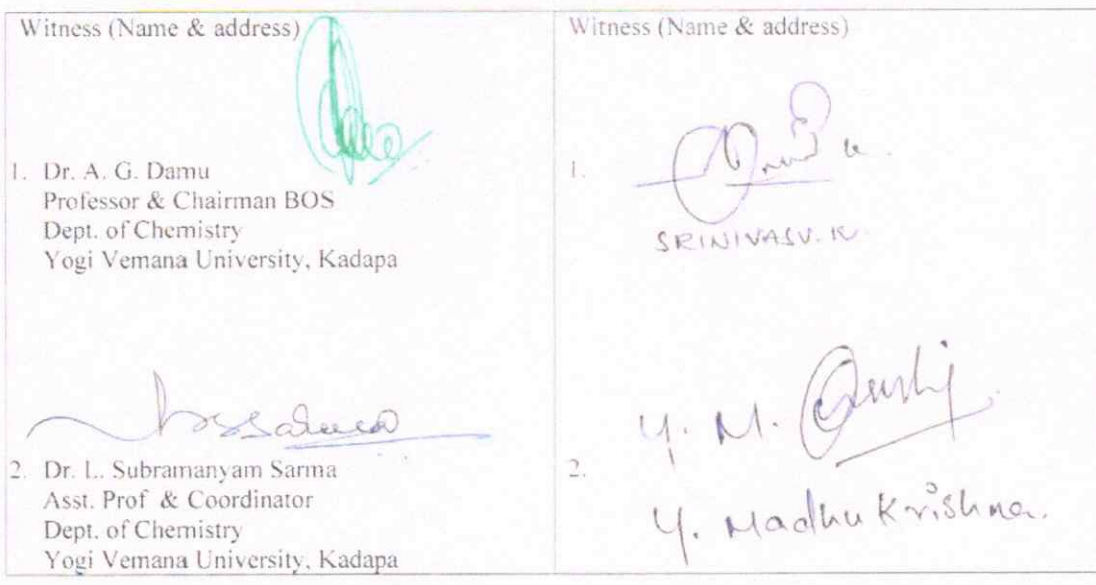 Witness (Name & address)
1. Dr. A. G. Damu
Professor & Chairman BOS
Dept. of Chemistry
Yogi Vemana University, Kadapa
2. Dr. L. Subramanyam Sarma
Asst. Prof & Coordinator
Dept. of Chemistry
Yogi Vemana University, Kadapa
Witness (Name & address)
1.
SRINIVASU. K
2.
Y. M.
Y. Madhu Krishna.